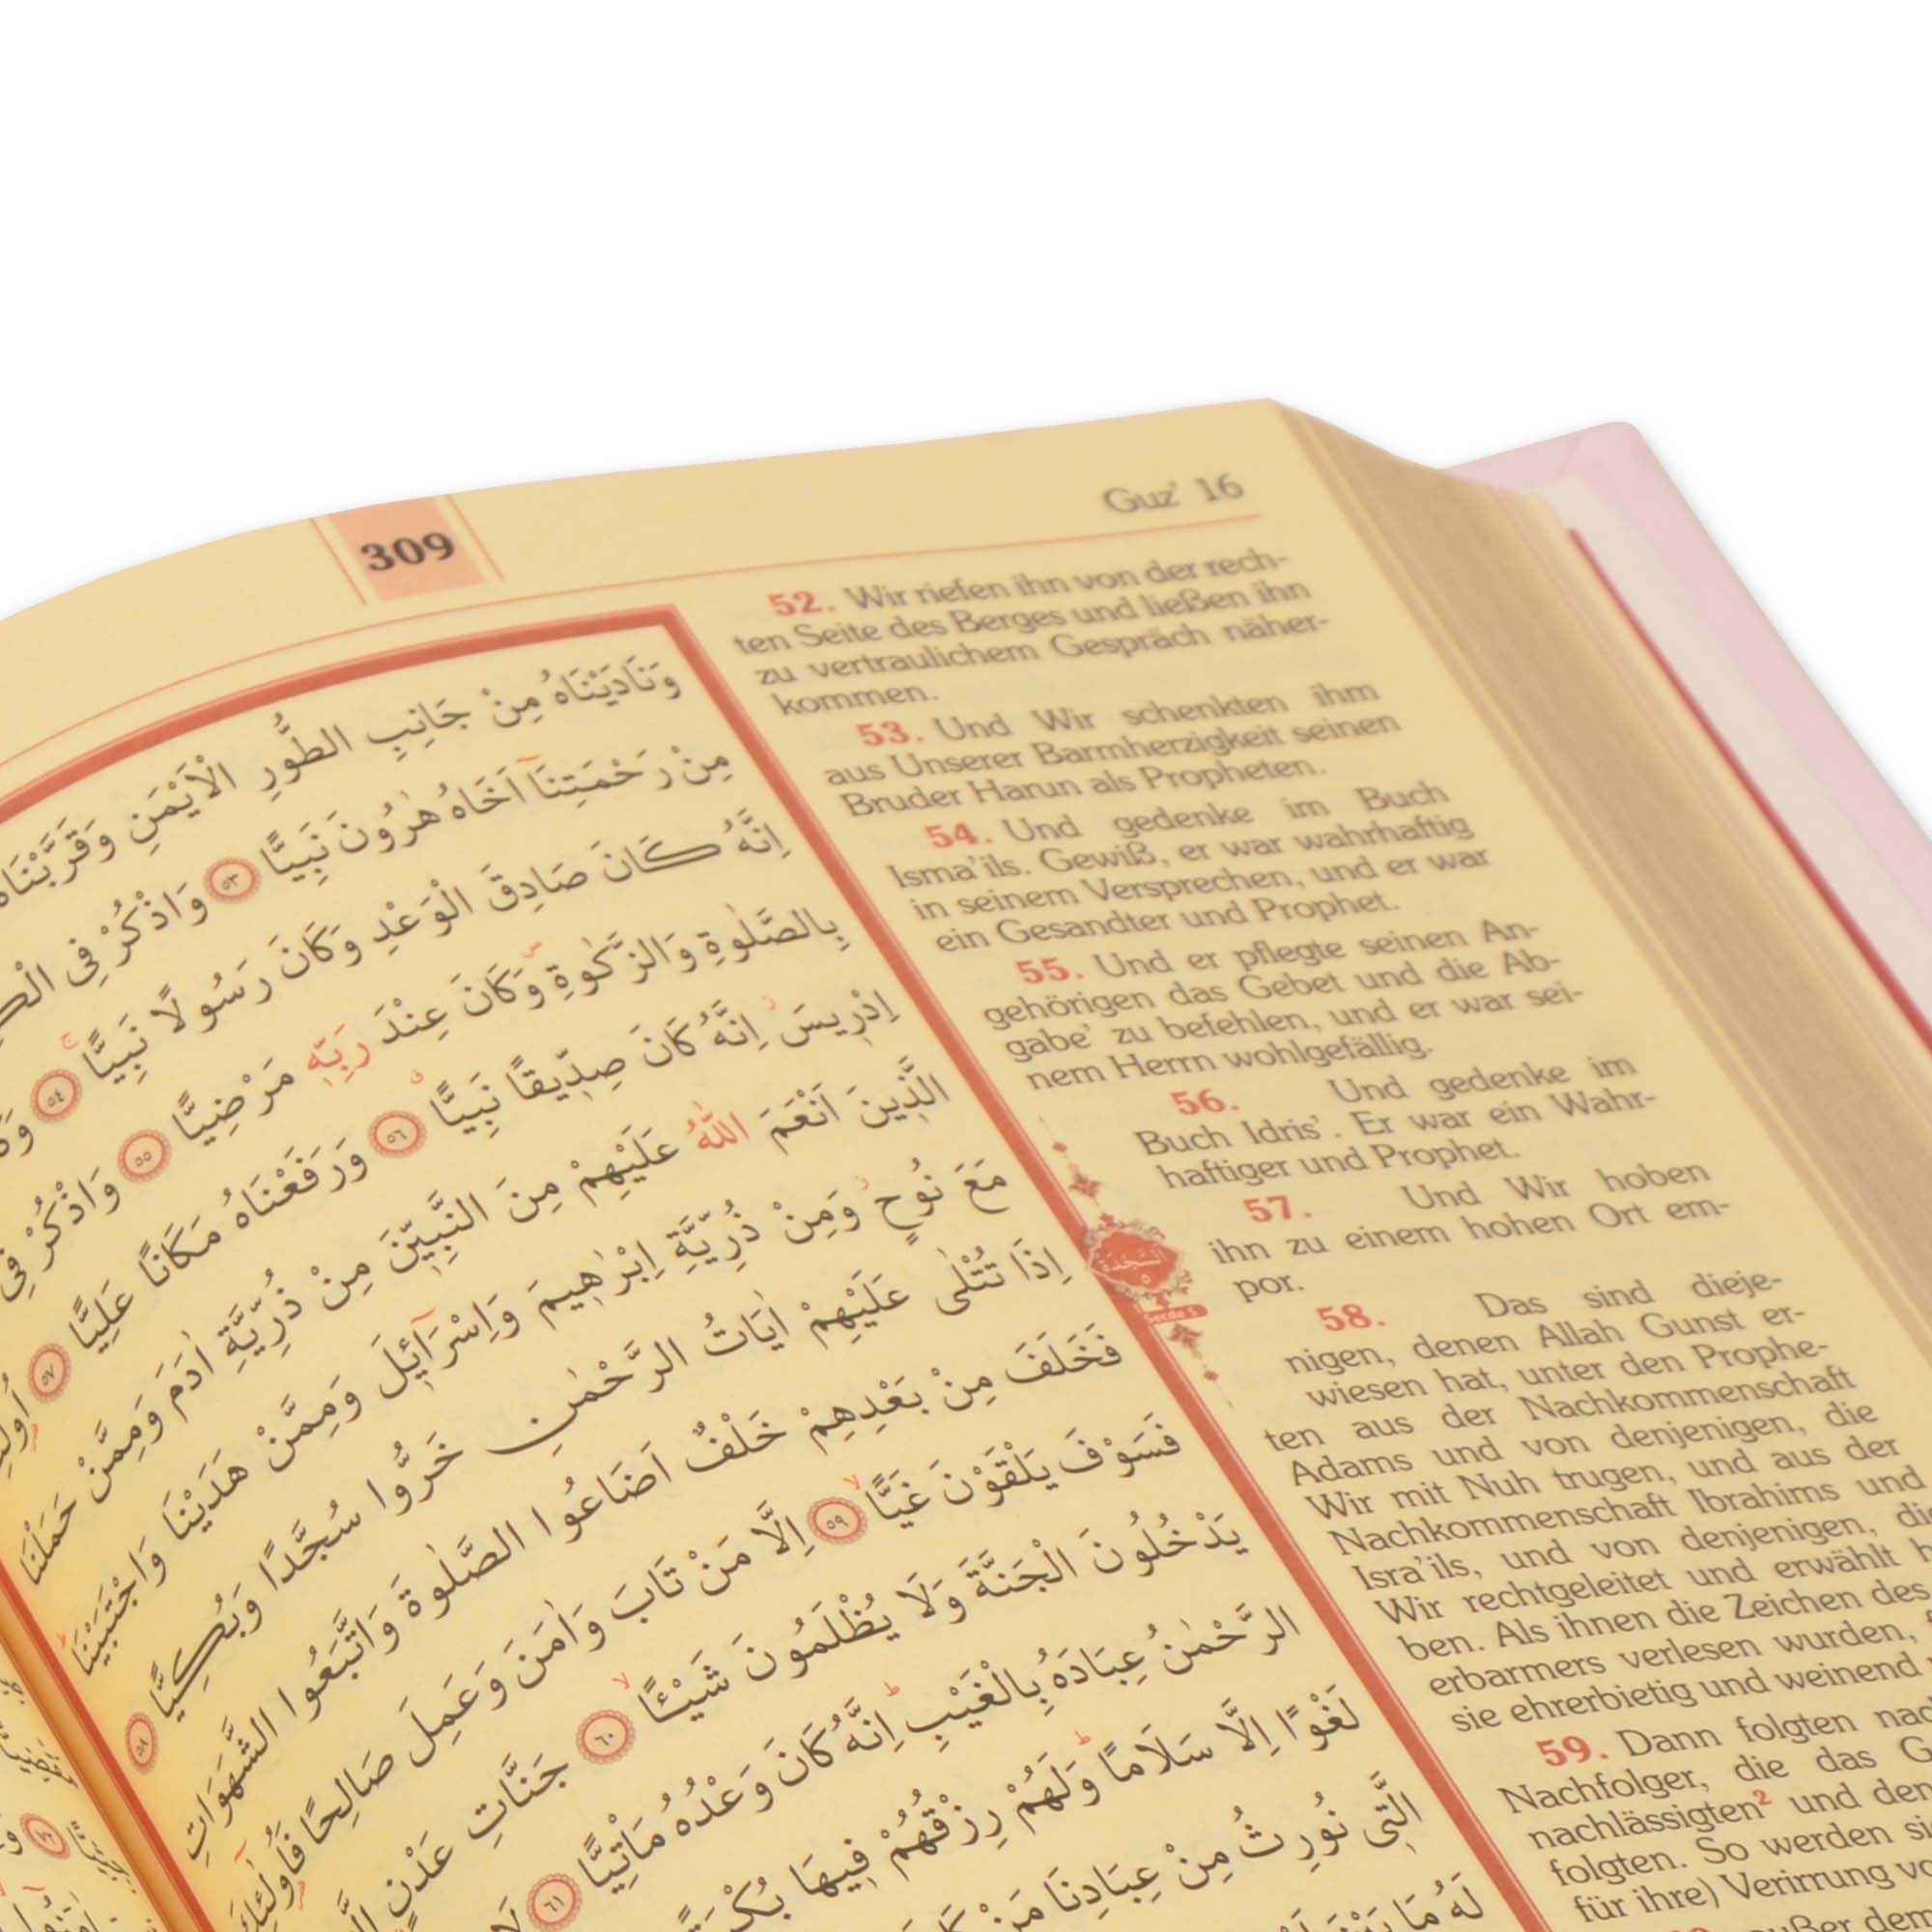 309
Guz' 16
وَنَادَيْنَاهُ مِنْ جَانِبِ الطُّورِ الْاَيْمَنِ وَقَرَّبْنَاهُ
مِنْ رَحْمَتِنَٓا اَخَاهُ هٰرُونَ نَبِيًّا ٥٣ وَاذْكُرْ فِي
اِنَّهُ كَانَ صَادِقَ الْوَعْدِ وَكَانَ رَسُولًا نَبِيًّا ٥٤
بِالصَّلٰوةِ وَالزَّكٰوةِ وَكَانَ عِنْدَ رَبِّهِ مَرْضِيًّا ٥٥ وَاذْكُرْ فِي
اِدْرِيسَ اِنَّهُ كَانَ صِدِّيقًا نَبِيًّا ٥٦ وَرَفَعْنَاهُ مَكَانًا عَلِيًّا ٥٧
الَّذِينَ اَنْعَمَ اللّٰهُ عَلَيْهِمْ مِنَ النَّبِيّنَ مِنْ ذُرِّيَّةِ اٰدَمَ وَمِمَّنْ حَمَلْنَا
مَعَ نُوحٍ وَمِنْ ذُرِّيَّةِ اِبْرٰهِيمَ وَاِسْرَٓائِلَ وَمِمَّنْ هَدَيْنَا وَاجْتَبَيْنَا
اِذَا تُتْلٰى عَلَيْهِمْ اٰيَاتُ الرَّحْمٰنِ خَرُّوا سُجَّدًا وَبُكِيًّا ٥٨
فَخَلَفَ مِنْ بَعْدِهِمْ خَلْفٌ اَضَاعُوا الصَّلٰوةَ وَاتَّبَعُوا الشَّهَوَاتِ
فَسَوْفَ يَلْقَوْنَ غَيًّا ٥٩ اِلَّا مَنْ تَابَ وَاٰمَنَ وَعَمِلَ صَالِحًا فَاُو۬لٰٓئِكَ
يَدْخُلُونَ الْجَنَّةَ وَلَا يُظْلَمُونَ شَيْئًا ٦٠ جَنَّاتِ عَدْنٍ
الرَّحْمٰنُ عِبَادَهُ بِالْغَيْبِ اِنَّهُ كَانَ وَعْدُهُ مَأْتِيًّا ٦١
لَغْوًا اِلَّا سَلَامًا وَلَهُمْ رِزْقُهُمْ فِيهَا
الَّتِي نُورِثُ مِنْ عِبَادِنَا مَنْ
لَهُ مَا
السَّجْدَة
52. Wir riefen ihn von der rech-
ten Seite des Berges und ließen ihn
zu vertraulichem Gespräch näher-
kommen.
53. Und Wir schenkten ihm
aus Unserer Barmherzigkeit seinen
Bruder Harun als Propheten.
54. Und gedenke im Buch
Isma'ils. Gewiß, er war wahrhaftig
in seinem Versprechen, und er war
ein Gesandter und Prophet.
55. Und er pflegte seinen An-
gehörigen das Gebet und die Ab-
gabe' zu befehlen, und er war sei-
nem Herrn wohlgefällig.
56. Und gedenke im
Buch Idris'. Er war ein Wahr-
haftiger und Prophet.
57. Und Wir hoben
ihn zu einem hohen Ort em-
por.
58. Das sind dieje-
nigen, denen Allah Gunst er-
wiesen hat, unter den Prophe-
ten aus der Nachkommenschaft
Adams und von denjenigen, die
Wir mit Nuh trugen, und aus der
Nachkommenschaft Ibrahims und
Isra'ils, und von denjenigen, die
Wir rechtgeleitet und erwählt
ben. Als ihnen die Zeichen des
erbarmers verlesen wurden,
sie ehrerbietig und weinend
59. Dann folgten
Nachfolger, die das
nachlässigten² und
folgten. So werden
für ihre) Verirrung